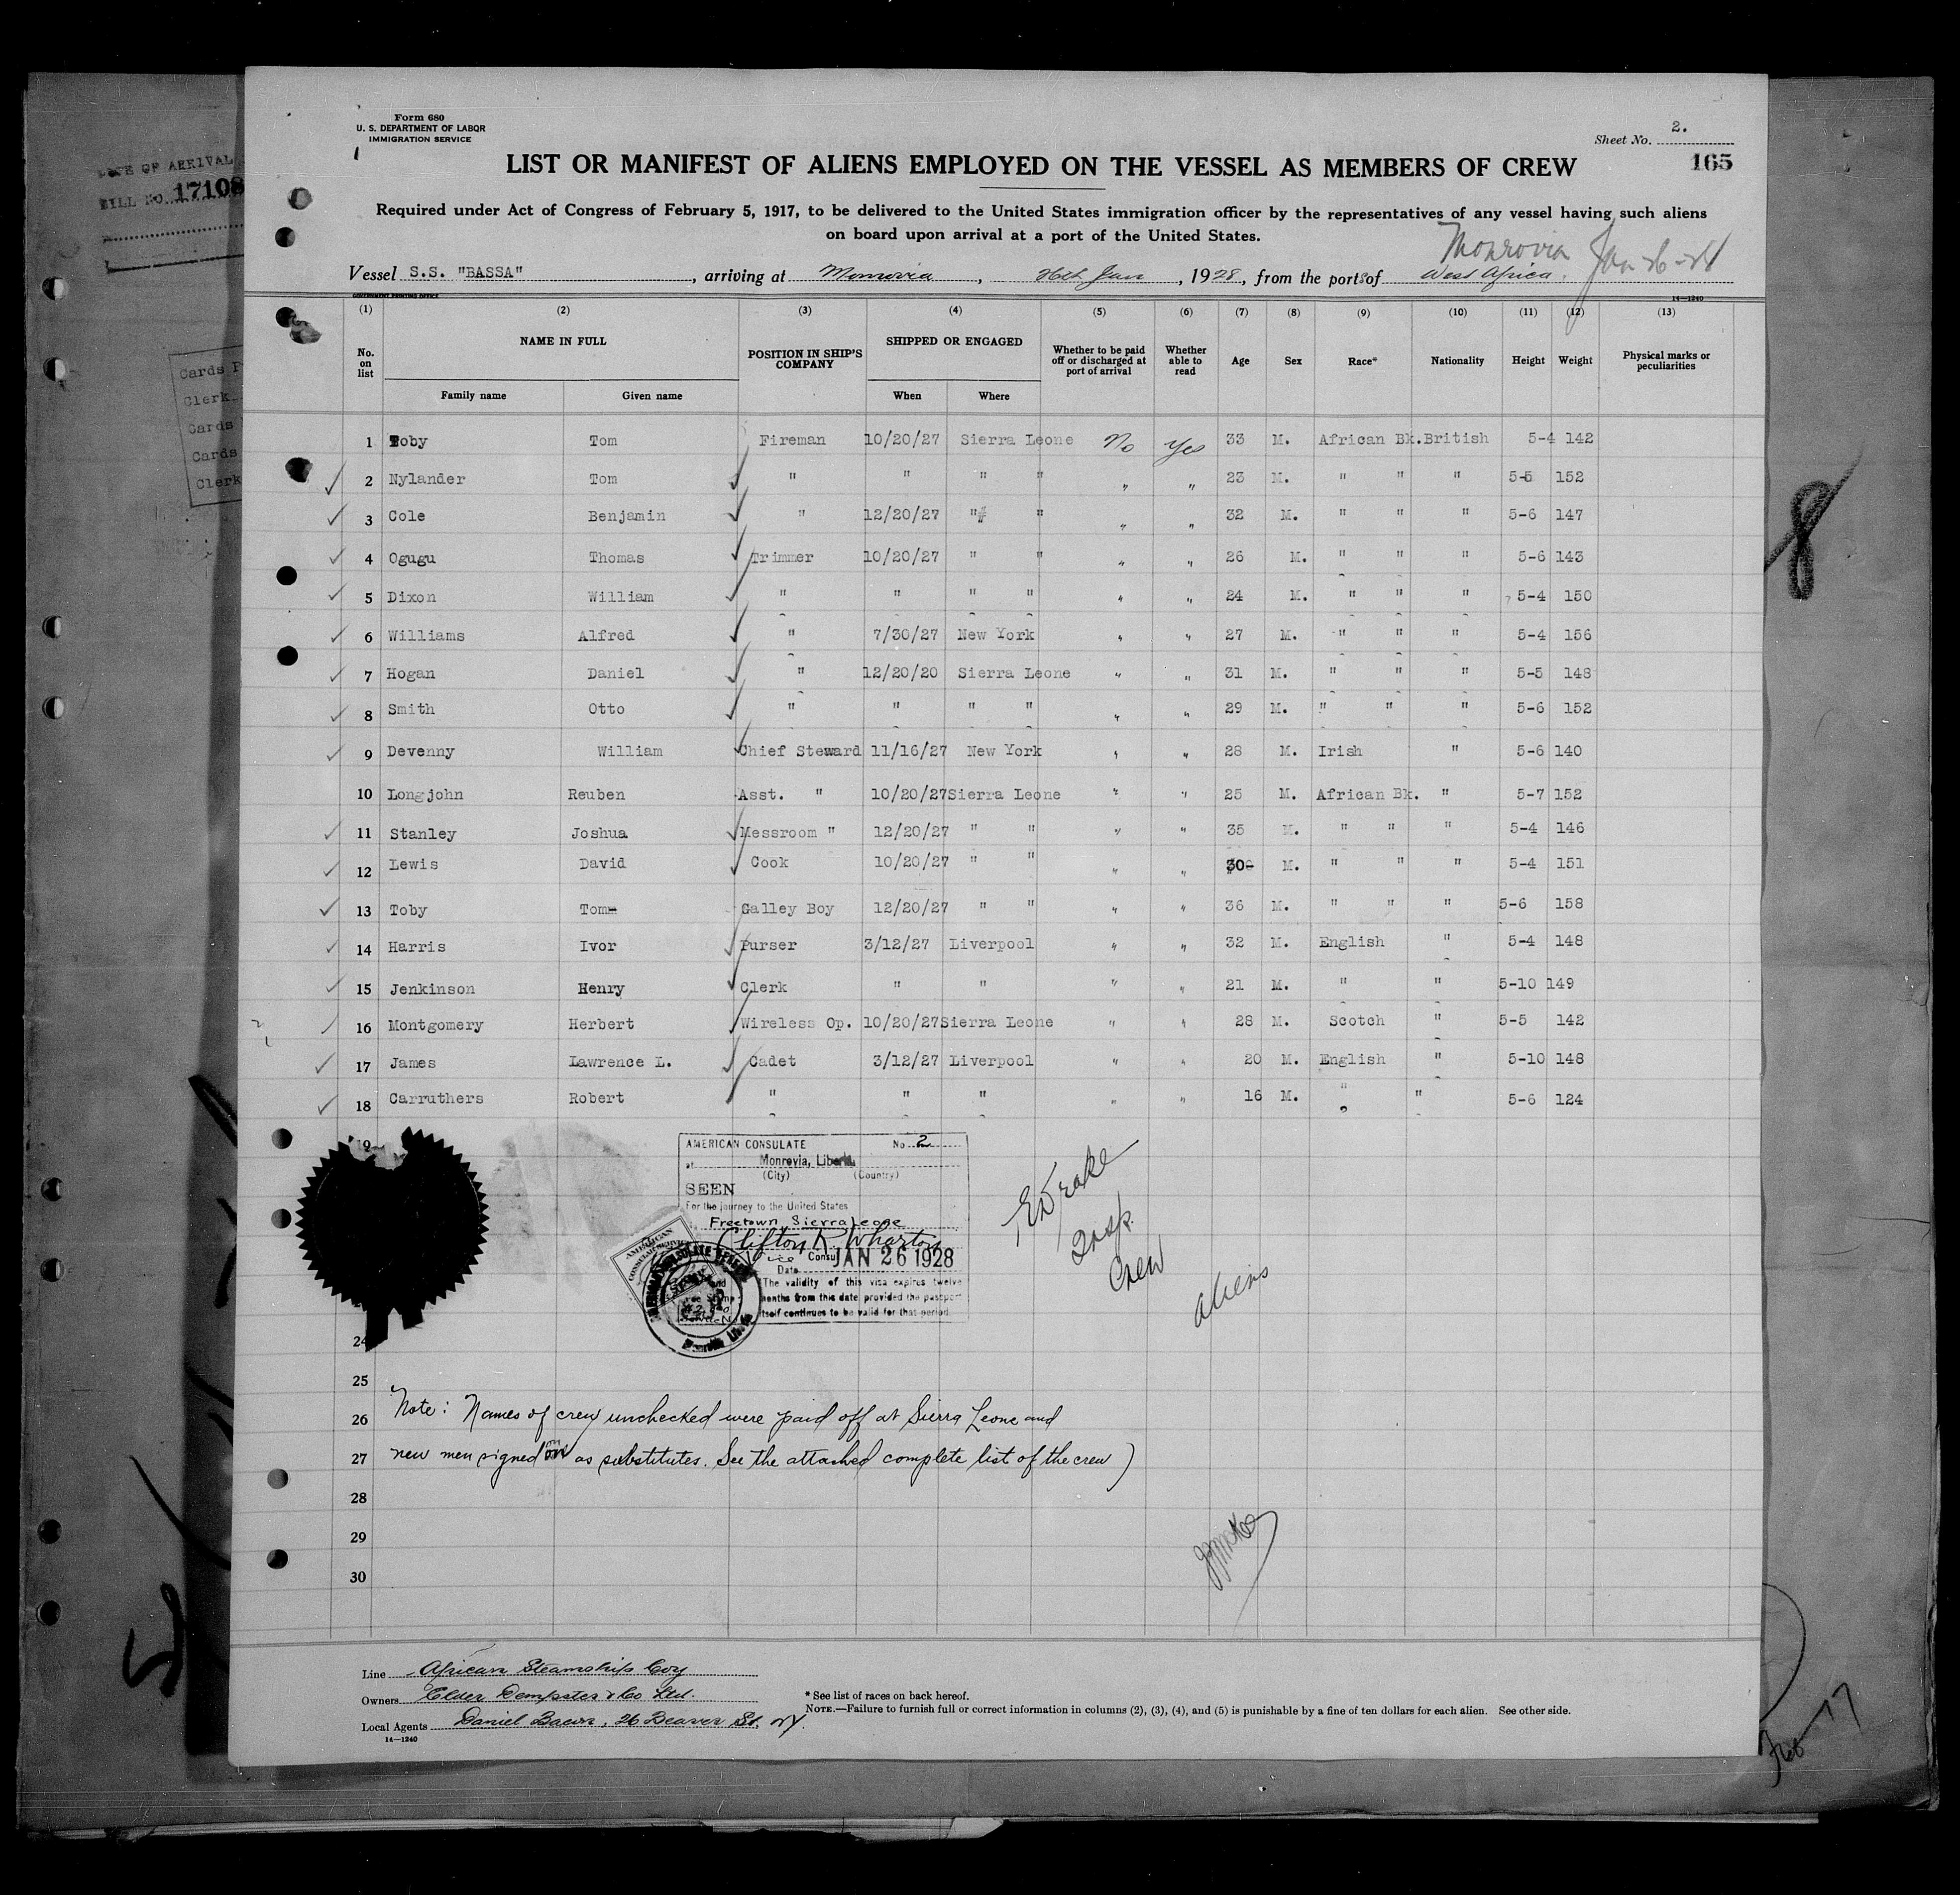 DATE OF ARRIVAL
BILL NO. 17108
Cards
Clerk
Cards
Cards
Clerk
Form 680
U. S. DEPARTMENT OF LABOR
IMMIGRATION SERVICE
Sheet No. 2.
165
LIST OR MANIFEST OF ALIENS EMPLOYED ON THE VESSEL AS MEMBERS OF CREW
Required under Act of Congress of February 5, 1917, to be delivered to the United States immigration officer by the representatives of any vessel having such aliens
on board upon arrival at a port of the United States.
Monrovia Jan 26-28
Vessel S.S. "BASSA", arriving at Monrovia, 26th Jan, 1928, from the ports of West Africa.
GOVERNMENT PRINTING OFFICE 14—1240
(1) (2) (3) (4) (5) (6) (7) (8) (9) (10) (11) (12) (13)
No. on list NAME IN FULL POSITION IN SHIP'S COMPANY SHIPPED OR ENGAGED Whether to be paid off or discharged at port of arrival Whether able to read Age Sex Race* Nationality Height Weight Physical marks or peculiarities
Family name Given name When Where
1 Toby Tom Fireman 10/20/27 Sierra Leone No Yes 33 M. African Bk. British 5-4 142
2 Nylander Tom " " " " " " 23 M. " " " 5-5 152
3 Cole Benjamin " 12/20/27 " " " " 32 M. " " " 5-6 147
4 Ogugu Thomas Trimmer 10/20/27 " " " " 26 M. " " " 5-6 143
5 Dixon William " " " " " " 24 M. " " " 5-4 150
6 Williams Alfred " 7/30/27 New York " " 27 M. " " " 5-4 156
7 Hogan Daniel " 12/20/20 Sierra Leone " " 31 M. " " " 5-5 148
8 Smith Otto " " " " " " 29 M. " " " 5-6 152
9 Devenny William Chief Steward 11/16/27 New York " " 28 M. Irish " 5-6 140
10 Longjohn Reuben Asst. " 10/20/27 Sierra Leone " " 25 M. African Bk. " 5-7 152
11 Stanley Joshua Messroom " 12/20/27 " " " " 35 M. " " " 5-4 146
12 Lewis David Cook 10/20/27 " " " " 30 M. " " " 5-4 151
13 Toby Tom Galley Boy 12/20/27 " " " " 36 M. " " " 5-6 158
14 Harris Ivor Purser 3/12/27 Liverpool " " 32 M. English " 5-4 148
15 Jenkinson Henry Clerk " " " " 21 M. " " 5-10 149
16 Montgomery Herbert Wireless Op. 10/20/27 Sierra Leone " " 28 M. Scotch " 5-5 142
17 James Lawrence L. Cadet 3/12/27 Liverpool " " 20 M. English " 5-10 148
18 Carruthers Robert " " " " " 16 M. " " 5-6 124
AMERICAN CONSULATE No. 2
at Monrovia, Liberia
(City) (Country)
SEEN
For the journey to the United States
Freetown, Sierra Leone
Clifton R. Wharton
Vice Consul
Date JAN 26 1928
The validity of this visa expires twelve
months from this date provided the passport
itself continues to be valid for that period.
E Drake
Insp.
Crew
aliens
24
25
26 Note: Names of crew unchecked were paid off at Sierra Leone and
27 new men signed on as substitutes. See the attached complete list of the crew)
28
29
30
Line African Steamship Coy
Owners Elder Dempster & Co Ltd.
Local Agents Daniel Bacon, 26 Beaver St, NY.
14—1240
* See list of races on back hereof.
NOTE.—Failure to furnish full or correct information in columns (2), (3), (4), and (5) is punishable by a fine of ten dollars for each alien. See other side.